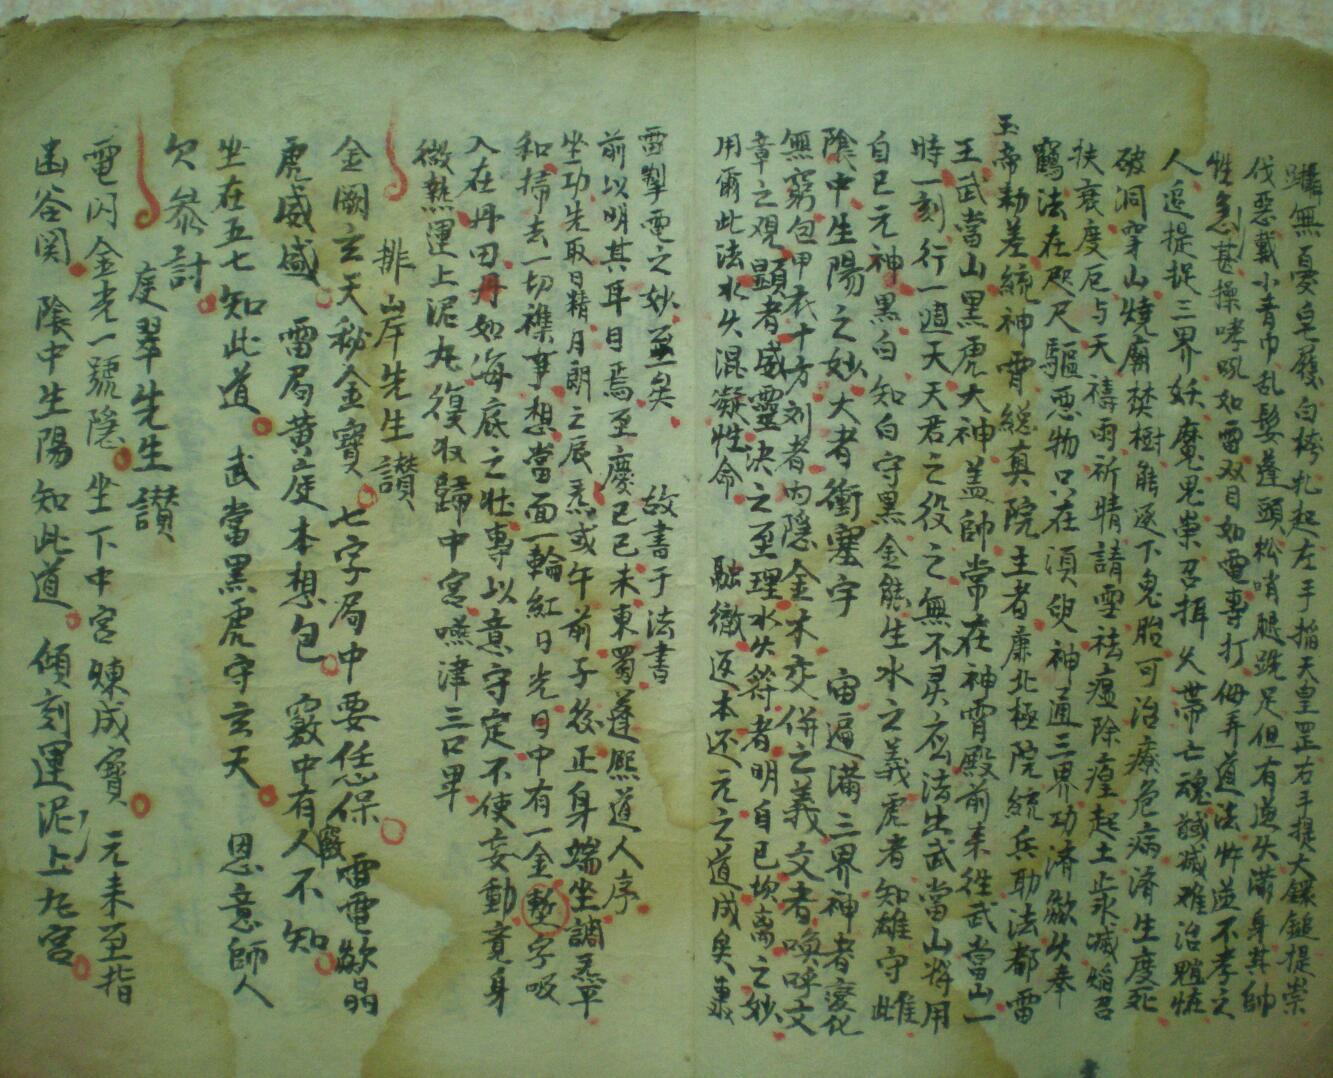 無憂皂履白袴扎起左手搯天皇罡右手提大鎚提崇
伐惡戴小青巾乱髮蓬頭松哨腿跣足但有道火滿身其帥
性急甚操哮吼如雷双目如電專打侮弄道法忤逆不孝之
人追提捉三界妖魔鬼祟召揖火帶亡魂難治
破洞穿山燒廟焚樹能逐下鬼胎可治療危病濟生度死
扶衰度厄与天禱雨祈晴請雪祛瘟除瘴起土收滅焰召
鶴法在咫尺驅惡物口在須臾神通三界功濟火奉
玉帝勅差統神霄總真院主者廉北極院統兵助法都雷
王武當山黑虎大神盖帥常在神霄殿前来往武當山一
時一刻行一週天天君之役之無不灵应法出武當山將用
自己元神黑白知白守黑金能生水之義虎者知雄守雌
陰中生陽之妙大者衝塞宇宙遍滿三界神者變化
無窮包甲衣十方刘者内隱金木交併之義文者喚呼文
章之观顕者威靈决之至理水火符者明自己坎离之妙
用爾此法水火混凝性命融徹返本还元之道成矣裏
雷掣電之妙至矣故書于法書
前以明其耳目焉至慶己巳未東蜀蓬熙道人序
坐功先取日精月朗之辰或午前子後正身端坐調炁平
和掃去一切襍事想當面一輪紅日光日中有一金字吸
入在丹田丹如海底之壮專以意守定不使妄動竟身
微熱運上泥丸復收歸中宮嚥津三口畢
排山岸先生讃
金闕玄天秘金寶七字局中要恁保雷電歘晶
虎威威雷局黄庭本想包竅中有人不知
坐在五七知此道武當黑虎守玄天恩意師人
欠叅討
度翠先生讃
電闪金光一號隐坐下中宮煉成寶元来至指
凾谷関陰中生陽知此道傾刻運泥上九宮